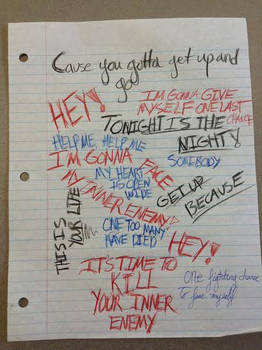 Cause you gotta get up and
go
HEY!
I'M GONNA GIVE
MYSELF ONE LAST
CHANCE
TONIGHT IS THE
NIGHT
HELP ME, HELP ME
SOMEBODY
I'M GONNA
FACE
MY INNER ENEMY
MY HEART
IS OPEN
WIDE
GET UP
BECAUSE
THIS IS
YOUR LIFE
ONE TOO MANY
HAVE DIED
HEY!
IT'S TIME TO
KILL
YOUR INNER
ENEMY
one fighting chance
to free myself